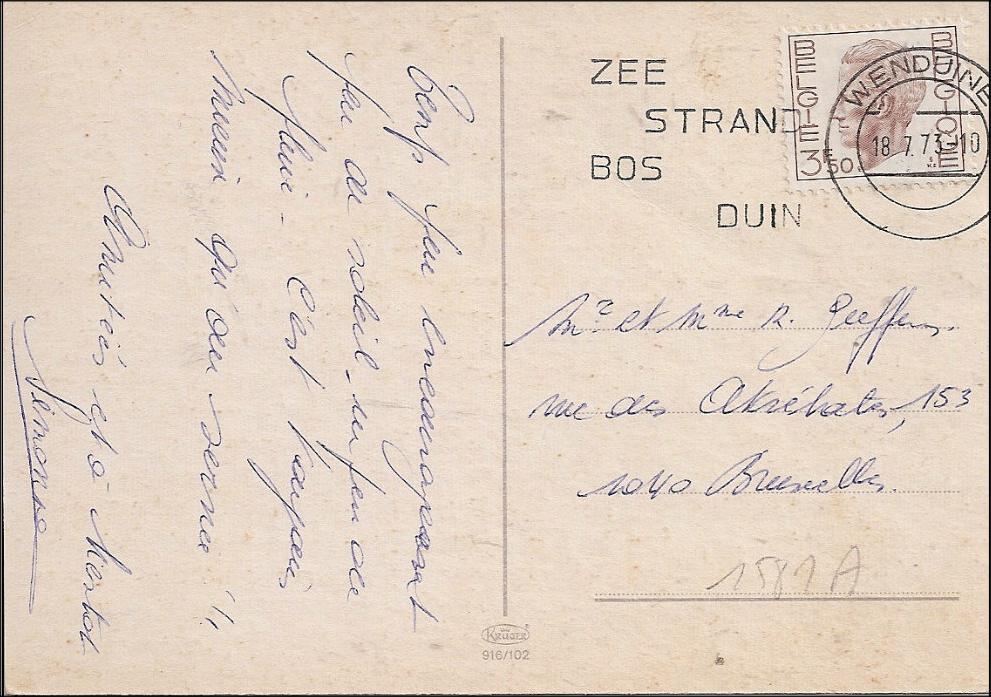 Temps peu encourageant
peu de soleil - un peu de
pluie - C'est toujours
mieux qu'au service !!
Amitiés et à
Simonne
ZEE
STRAND
BOS
DUIN
BELGIE
BELGIQUE
3F50
WENDUINE
18 7.73-10
Mr et Mme R. Geeffens.
rue des Atrébates, 153
1040 Bruxelles.
1582 A
KRÜGER
916/102